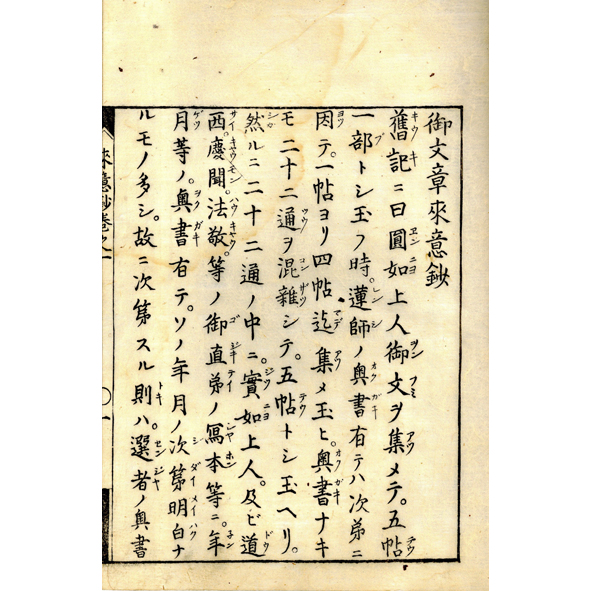 御文章來意鈔
舊記ニ曰圓如上人御文ヲ集メテ。五帖
一部トシ玉フ時。蓮師ノ奥書有テハ次弟ニ
因テ。一帖ヨリ四帖迄集メ玉ヒ。奥書ナキ
モ二十二通ヲ混雜シテ。五帖トシ玉ヘリ。
然ルニ二十二通ノ中ニ。實如上人。及ビ道
西。慶聞。法敬。等ノ御直弟ノ寫本等ニ。年
月等ノ。奥書有テ。ソノ年月ノ次第明白ナ
ルモノ多シ。故ニ次第スル則ハ。選者ノ奥書
來意鈔卷之一